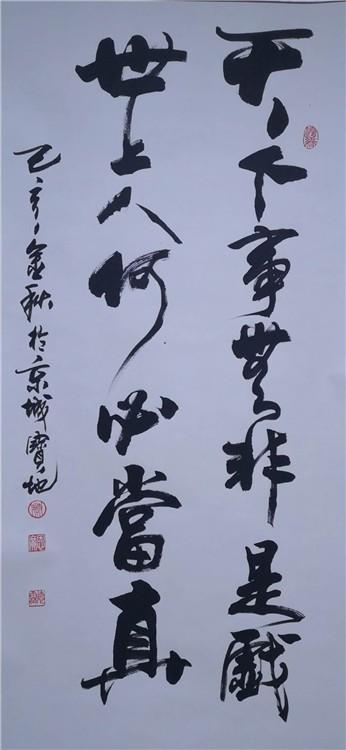 天下事無非是戲
世上人何必當真
己亥金秋於京城寶地